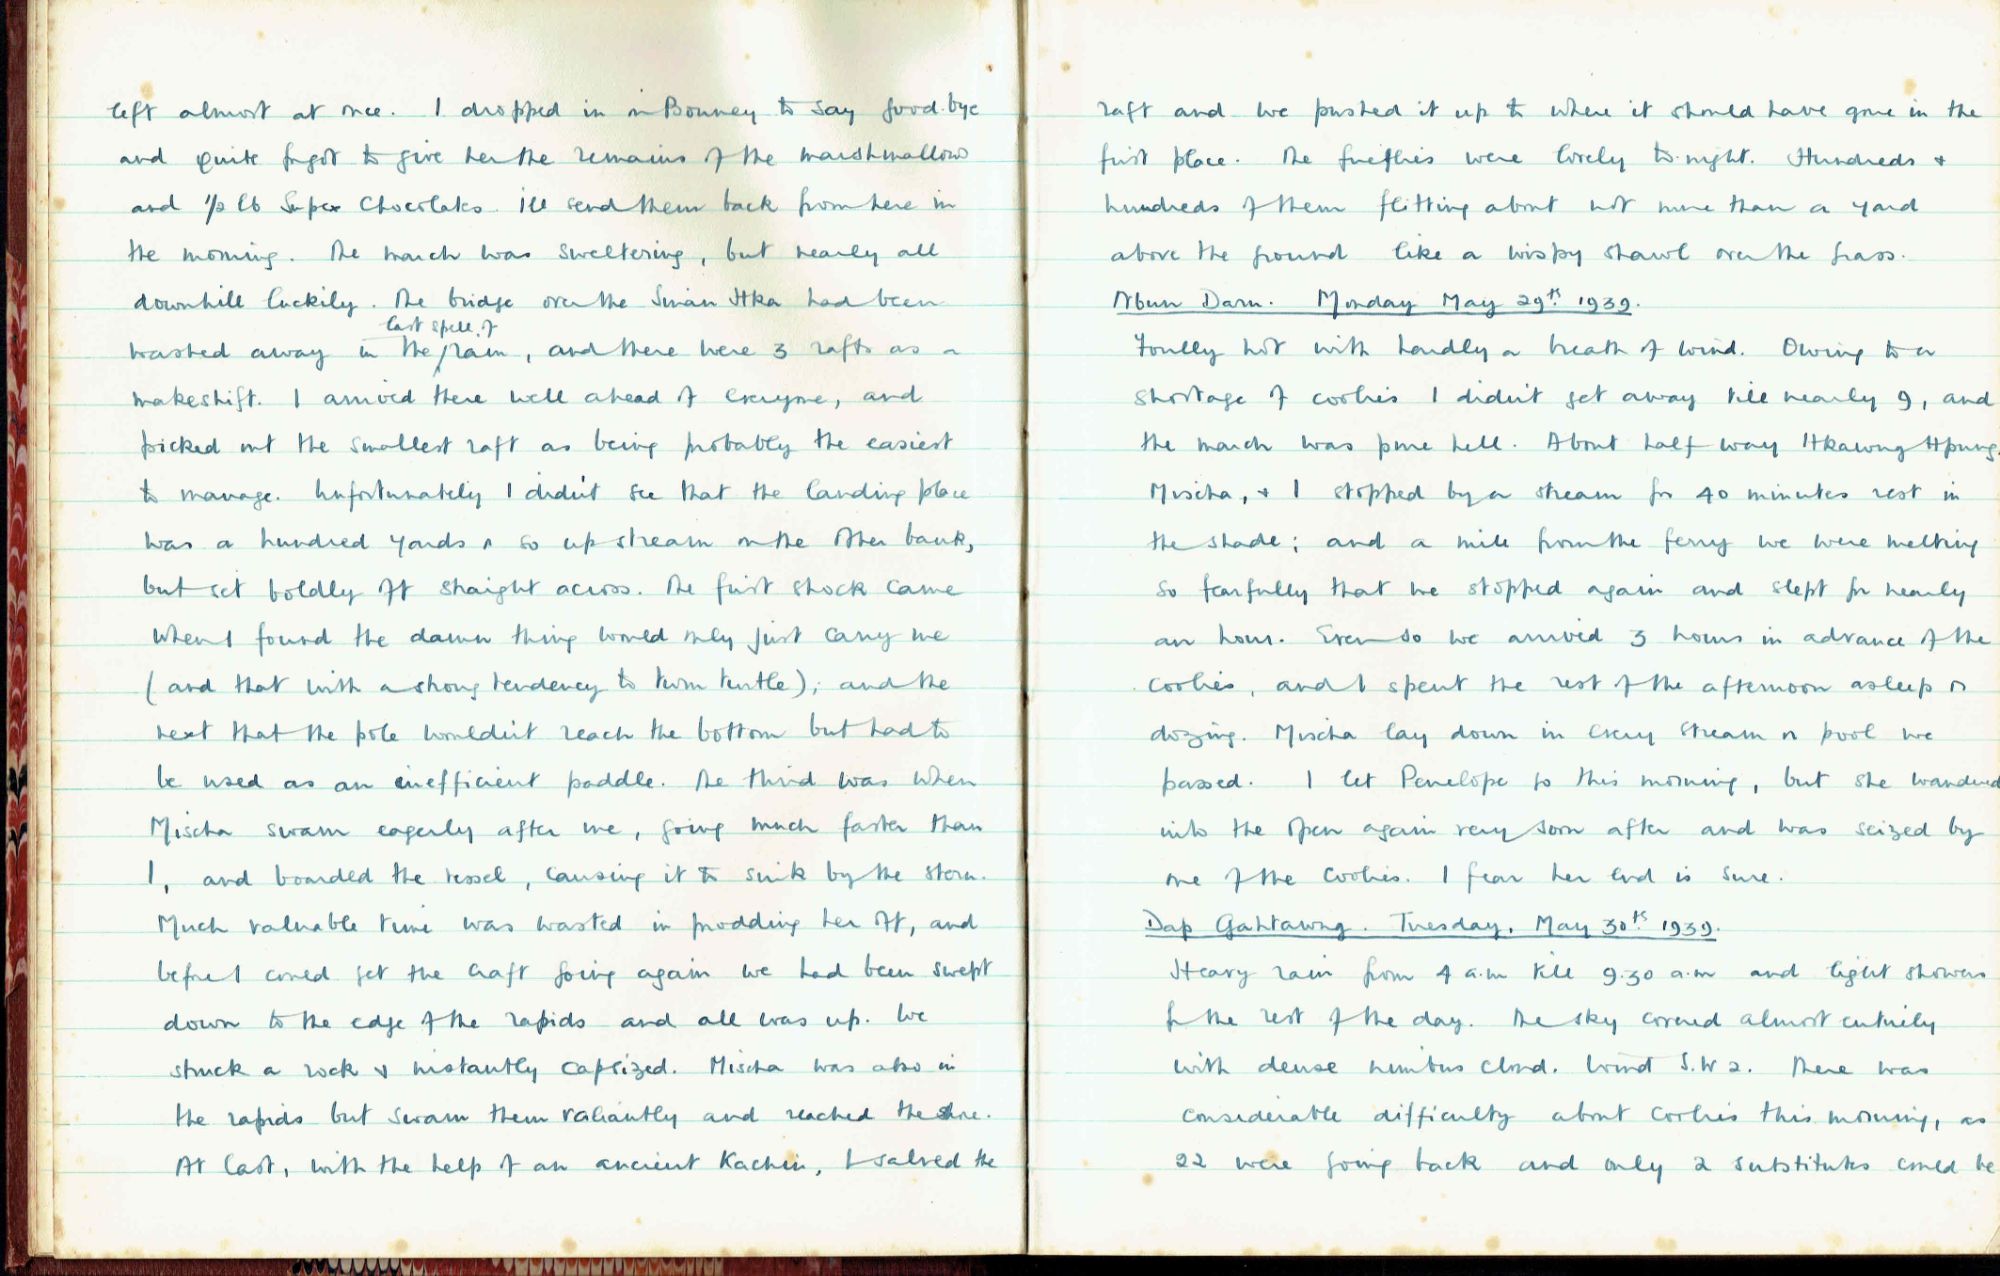 left almost at once. I dropped in on Bonney to say good-bye
and quite forgot to give her the remains of the marshmallow
and ½ lb Super Chocolates. I'll send them back from here in
the morning. The march was sweltering, but nearly all
downhill luckily. The bridge over the Sinan Hka had been
last spell of
washed away in the rain, and there were 3 rafts as a
makeshift. I arrived there well ahead of everyone, and
picked out the smallest raft as being probably the easiest
to manage. Unfortunately I didn't see that the landing place
was a hundred yards or so up stream on the other bank,
but set boldly off straight across. The first shock came
when I found the damn thing would only just carry me
(and that with a strong tendency to turn turtle); and the
next that the pole wouldn't reach the bottom but had to
be used as an inefficient paddle. The third was when
Mischa swam eagerly after me, going much faster than
I, and boarded the vessel, causing it to sink by the stern.
Much valuable time was wasted in prodding her off, and
before I could get the craft going again we had been swept
down to the edge of the rapids and all was up. We
struck a rock & instantly capsized. Mischa was also in
the rapids but swam them valiantly and reached the shore.
At last, with the help of an ancient Kachin, I salved the
raft and we pushed it up to where it should have gone in the
first place. The fireflies were lovely to-night. Hundreds &
hundreds of them flitting about not more than a yard
above the ground like a wispy shawl over the grass.
Nbun Daru. Monday May 29th. 1939.
Foully hot with hardly a breath of wind. Owing to a
shortage of coolies I didn't get away till nearly 9, and
the march was pure hell. About half way Hkawng Hpung,
Mischa, & I stopped by a stream for 40 minutes rest in
the shade; and a mile from the ferry we were melting
so fearfully that we stopped again and slept for nearly
an hour. Even so we arrived 3 hours in advance of the
coolies, and I spent the rest of the afternoon asleep or
dozing. Mischa lay down in every stream or pool we
passed. I let Penelope go this morning, but she wandered
into the open again very soon after and was seized by
one of the coolies. I fear her end is sure.
Dap Gahtawng. Tuesday, May 30th. 1939.
Heavy rain from 4 a.m till 9.30 a.m and light showers
for the rest of the day. The sky covered almost entirely
with dense nimbus cloud. Wind S.W 2. There was
considerable difficulty about coolies this morning, as
22 were going back and only 2 substitutes could be